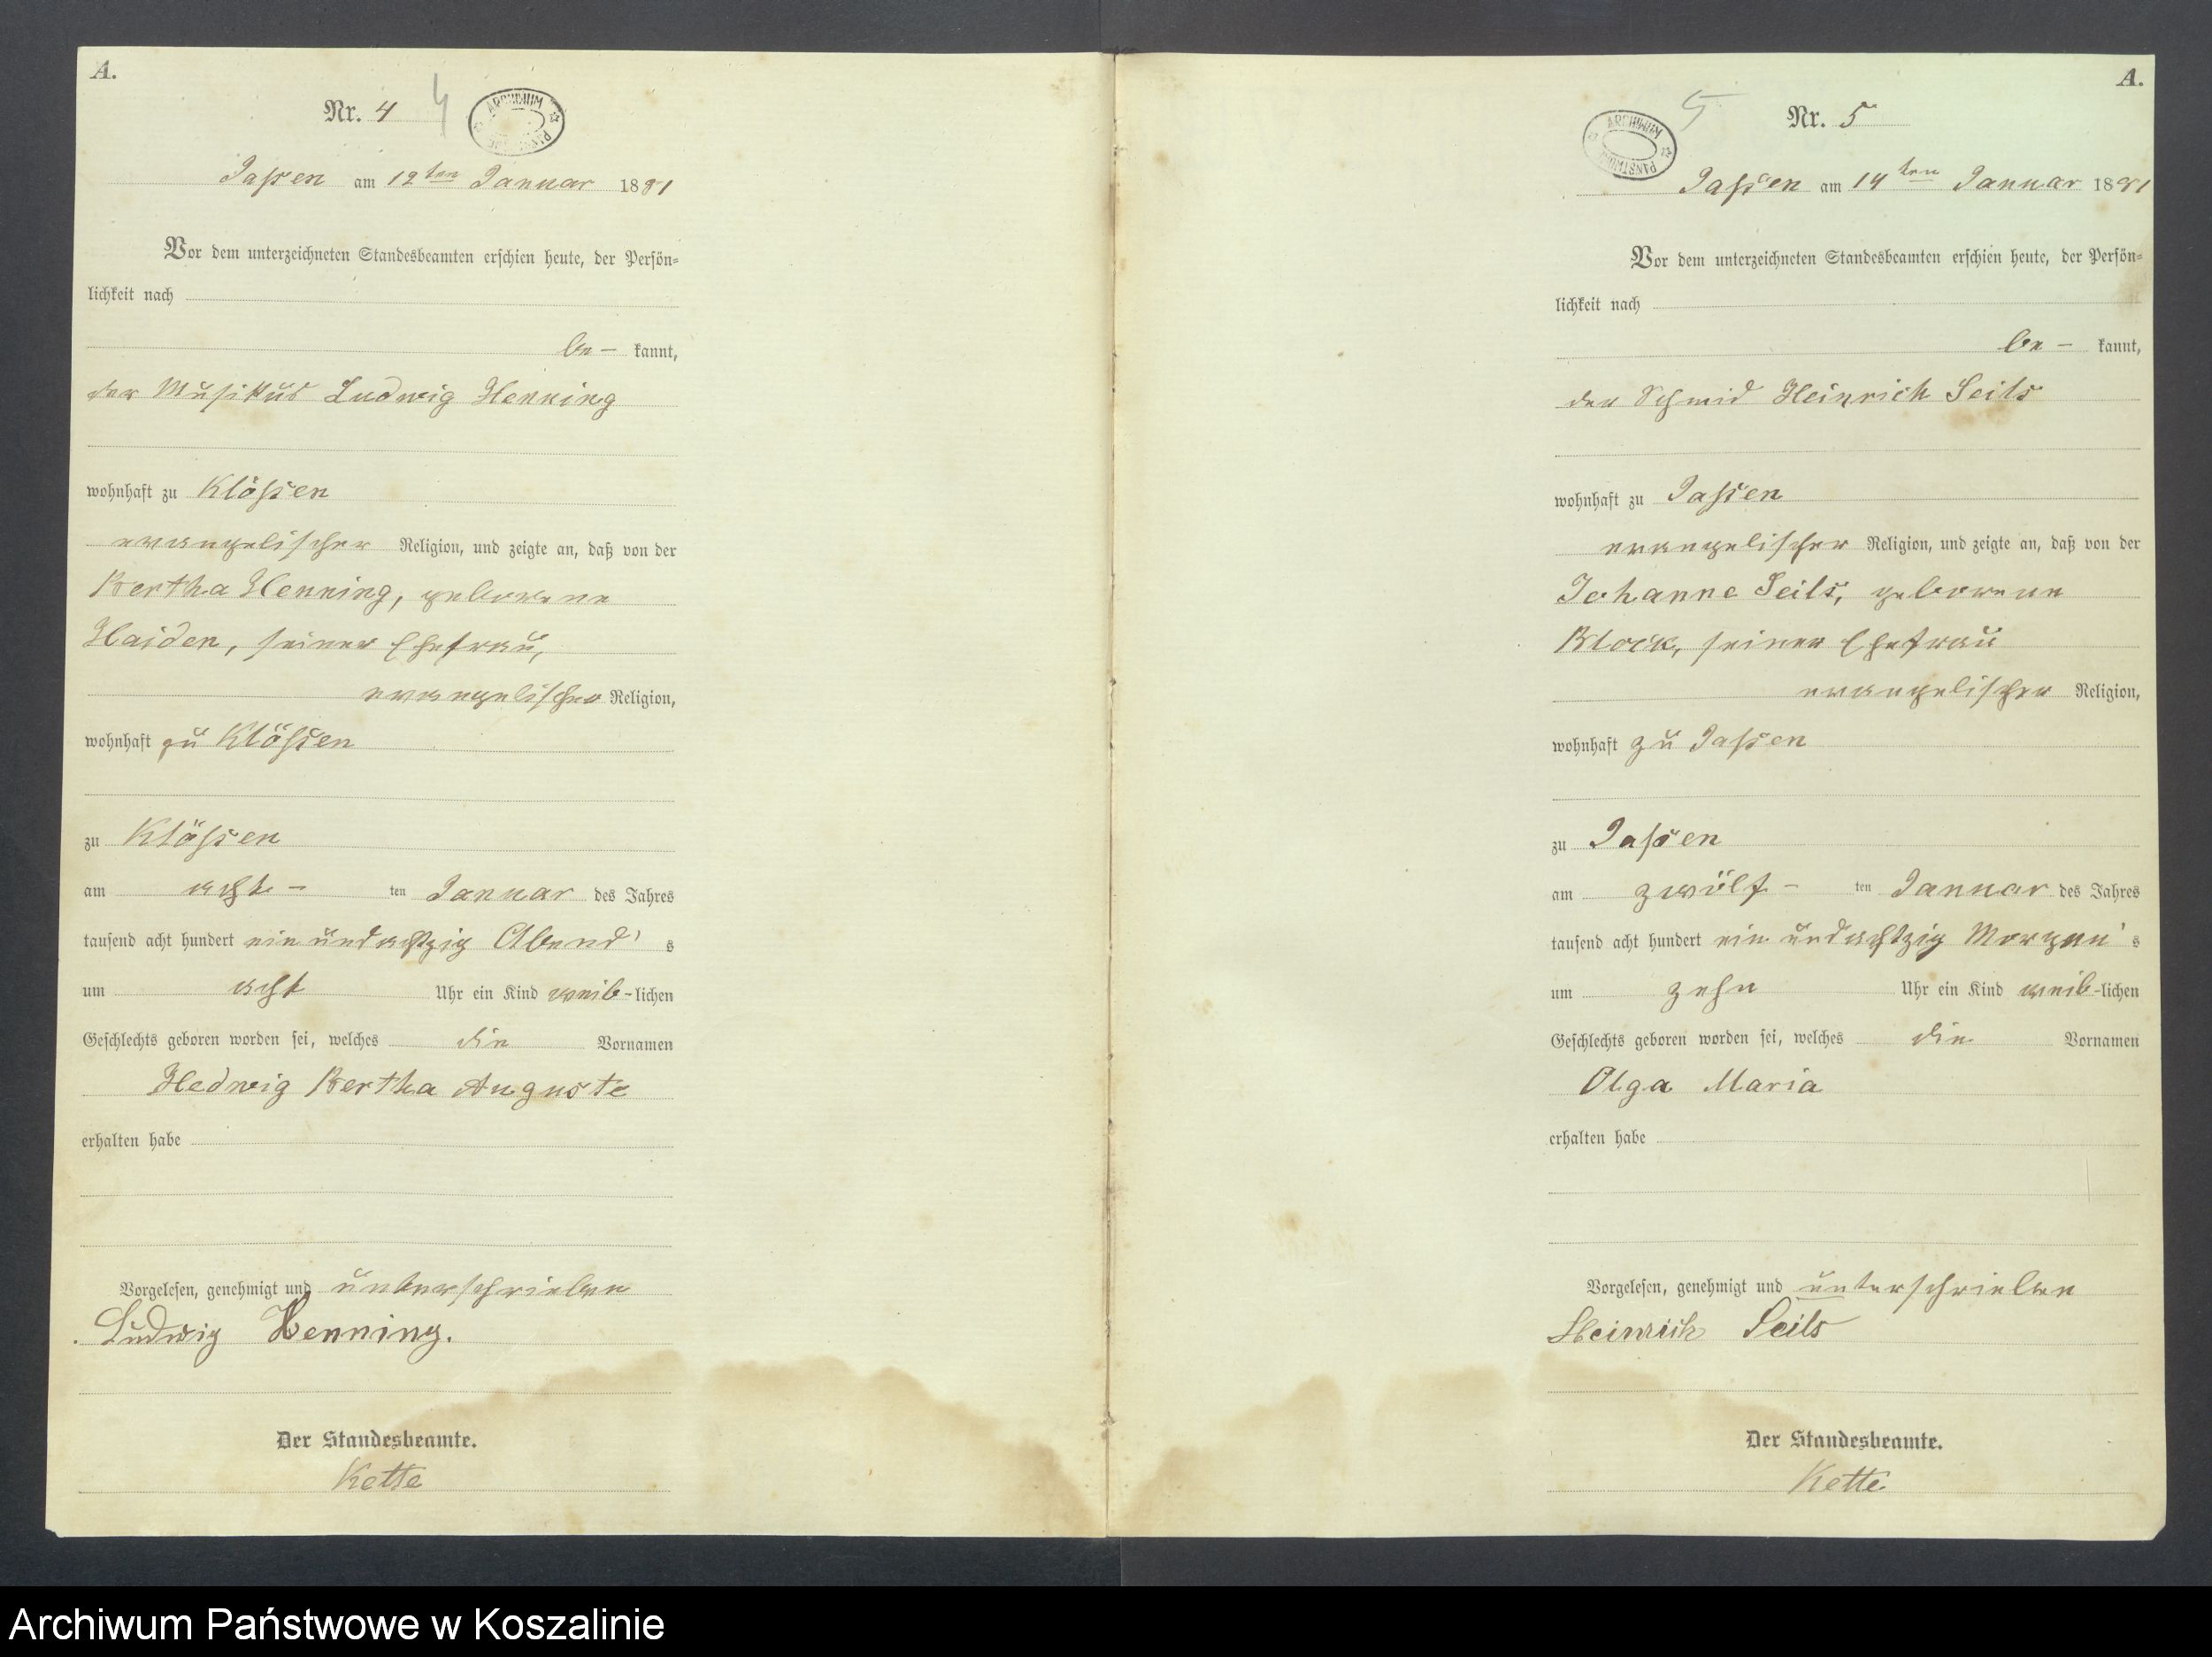 A.
Nr. 4 4
ARCHIWUM
Jassen am 12ten Januar 1881
Vor dem unterzeichneten Standesbeamten erschien heute, der Persön=
lichkeit nach
be- kannt,
der Musikus Ludwig Henning
wohnhaft zu Klössen
evangelischer Religion, und zeigte an, daß von der
Bertha Henning, geborene
Haiden, seiner Ehefrau,
evangelischer Religion,
wohnhaft zu Klössen
zu Klössen
am acht- ten Januar des Jahres
tausend acht hundert ein und achtzig Abend's
um acht Uhr ein Kind weib-lichen
Geschlechts geboren worden sei, welches die Vornamen
Hedwig Bertha Auguste
erhalten habe
Vorgelesen, genehmigt und unterschrieben
Ludwig Henning.
Der Standesbeamte.
Kette
A.
5 Nr. 5
ARCHIWUM PAŃSTWOWE
Jassen am 14ten Januar 1881
Vor dem unterzeichneten Standesbeamten erschien heute, der Persön=
lichkeit nach
be- kannt,
der Schmid Heinrich Seils
wohnhaft zu Jassen
evangelischer Religion, und zeigte an, daß von der
Johanne Seils, geborene
Block, seiner Ehefrau
evangelischer Religion,
wohnhaft zu Jassen
zu Jassen
am zwölf- ten Januar des Jahres
tausend acht hundert ein und achtzig Morgen's
um zehn Uhr ein Kind weib-lichen
Geschlechts geboren worden sei, welches die Vornamen
Olga Maria
erhalten habe
Vorgelesen, genehmigt und unterschrieben
Heinrich Seils
Der Standesbeamte.
Kette
Archiwum Państwowe w Koszalinie